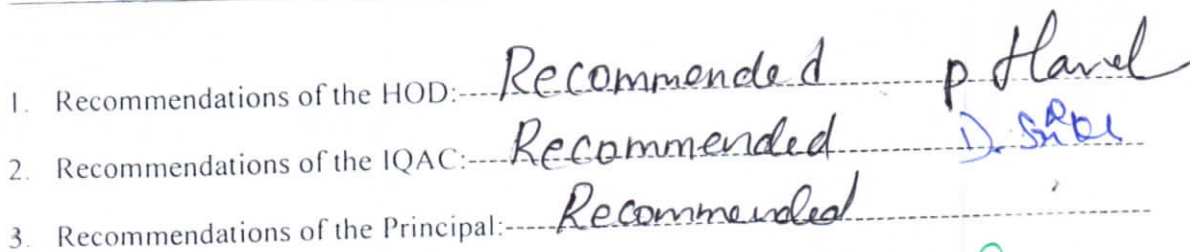 1. Recommendations of the HOD:----Recommended
2. Recommendations of the IQAC:----Recommended
3. Recommendations of the Principal:-----Recommended